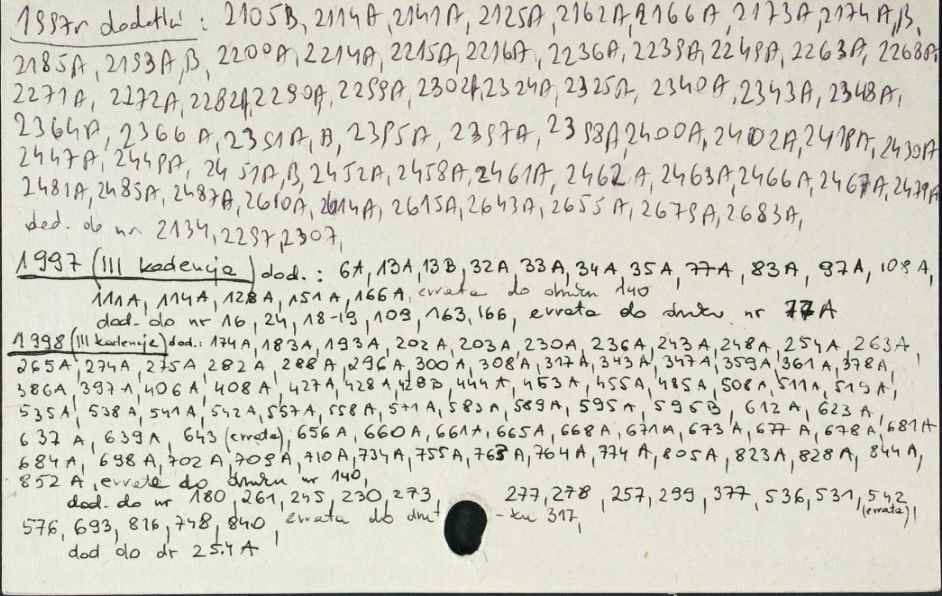 1997r dodatki : 2105B, 2114A, 2141A, 2125A, 2162A, 2166A, 2173A, 2174A,B,
2185A, 2193A,B, 2200A, 2214A, 2215A, 2216A, 2236A, 2239A, 2249A, 2263A, 2268A,
2271A, 2272A, 2282A, 2290A, 2299A, 2302A, 2324A, 2325A, 2340A, 2343A, 2348A,
2364A, 2366A, 2391A,B, 2395A, 2397A, 2398A, 2400A, 2402A, 2418A, 2430A
2447A, 2449A, 2451A,B, 2452A, 2458A, 2461A, 2462A, 2463A, 2466A, 2467A, 2479A
2481A, 2485A, 2487A, 2610A, 2614A, 2615A, 2643A, 2655A, 2679A, 2683A,
dod. do nr 2134, 2297, 2307,
1997 (III kadencja) dod. : 6A, 13A, 13B, 32A, 33A, 34A, 35A, 77A, 83A, 97A, 109A,
111A, 114A, 128A, 151A, 166A, errata do druku 140
dod. do nr 16, 24, 18-19, 109, 163, 166, errata do druku nr 77A
1998 (III kadencja) dod.: 174A, 183A, 193A, 202A, 203A, 230A, 236A, 243A, 248A, 254A, 263A,
265A, 274A, 275A, 282A, 288A, 296A, 300A, 308A, 317A, 343A, 347A, 359A, 361A, 378A,
386A, 397A, 406A, 408A, 427A, 428A, 428B, 444A, 453A, 455A, 485A, 508A, 511A, 519A,
535A, 538A, 541A, 542A, 557A, 558A, 571A, 583A, 589A, 595A, 595B, 612A, 623A,
637A, 639A, 643 (errata), 656A, 660A, 661A, 665A, 668A, 671A, 673A, 677A, 678A, 681A
684A, 698A, 702A, 709A, 710A, 734A, 755A, 763A, 764A, 774A, 805A, 823A, 828A, 844A,
852A, errata do druku nr 140,
dod. do nr 180, 261, 245, 230, 273, 277, 278, 257, 299, 377, 536, 531, 542 (errata),
576, 693, 816, 748, 840 errata do dru-ku 317,
dod do dr 254A